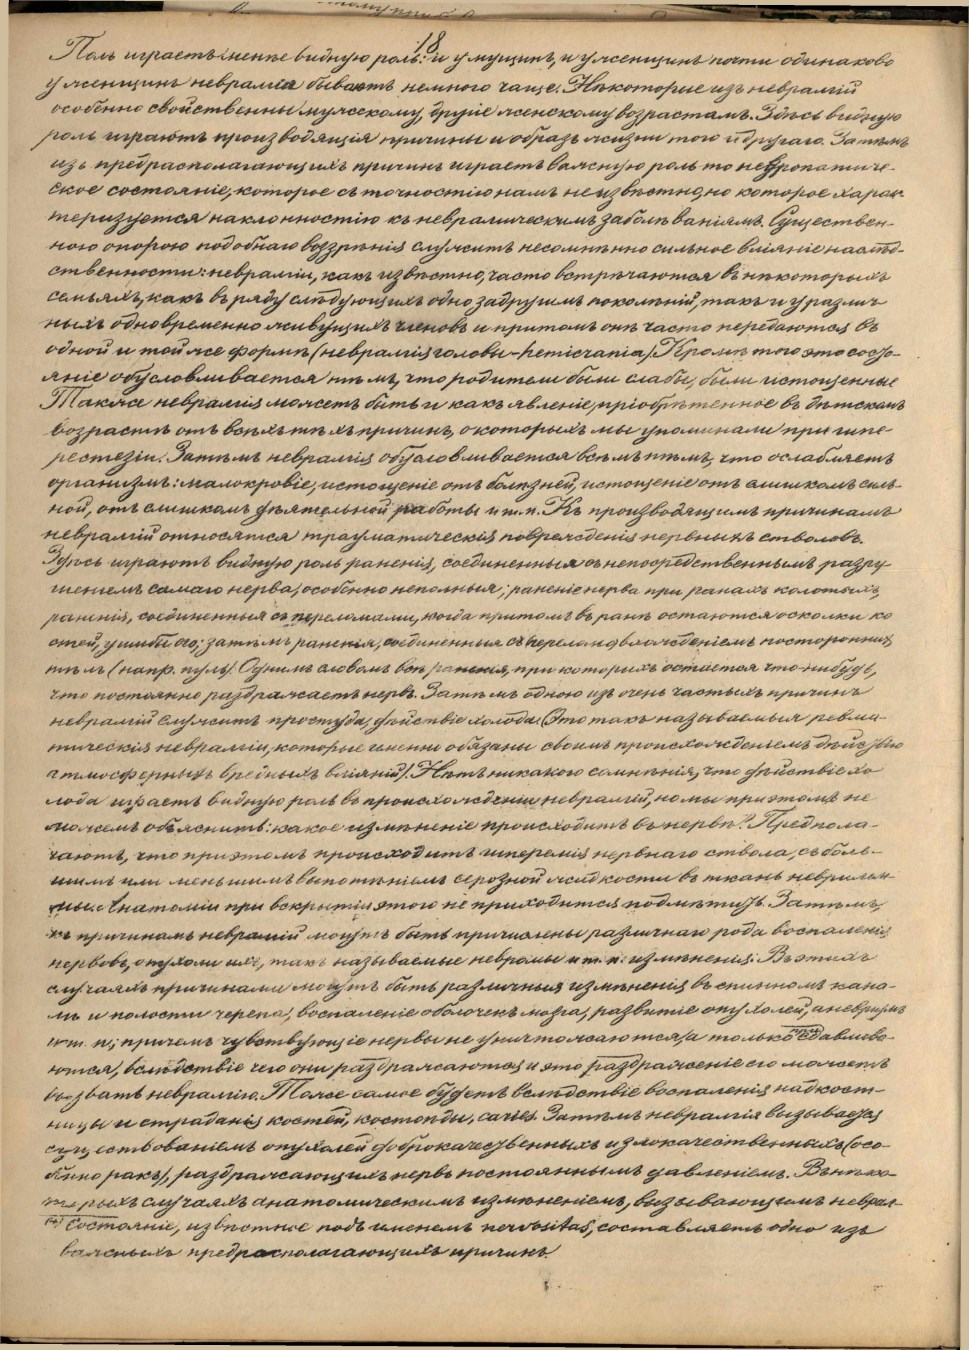 18
Полъ играетъ менѣе видную роль: и у мущинъ, и у женщинъ почти одинаково
у женщинъ невралгія бываютъ немного чаще. Нѣкоторые изъ невралгій
особенно свойственны мужскому, другіе женскому возрастамъ. Здѣсь видную
роль играютъ производящія причины и образъ жизни того и другаго. Затѣмъ
изъ предрасполагающихъ причинъ играетъ важную роль то невропатиче-
ское состояніе, которое съ точностію намъ неизвѣстно, но которое харак-
теризуется наклонностію къ невралгическимъ заболѣваніямъ. Существен-
ною опорою подобнаго воззрѣнія служитъ несомнѣнно сильное вліяніе наслѣд-
ственности: невралгіи, какъ извѣстно, часто встрѣчаются въ нѣкоторыхъ
семьяхъ, какъ въ ряду слѣдующихъ одно за другимъ поколѣній, такъ и у различ
ныхъ одновременно живущихъ членовъ и притомъ онѣ часто передаются въ
одной и той же формѣ (невралгія головы - hemicrania). Кромѣ того это состо-
яніе обусловливается тѣмъ, что родители были слабы, были истощенные
Также невралгія можетъ быть и какъ явленіе, пріобрѣтенное въ дѣтскомъ
возрастѣ отъ всѣхъ тѣхъ причинъ, о которыхъ мы упоминали при гипе-
рестезіи. Затѣмъ невралгія обусловливается всѣмъ тѣмъ, что ослабляетъ
организмъ: малокровіе, истощеніе отъ болѣзней, истощеніе отъ слишкомъ силь-
ной, отъ слишкомъ дѣятельной работы и т. п. Къ производящимъ причинамъ
невралгій относятся травматическія поврежденія нервныхъ стволовъ.
Здѣсь играютъ видную роль раненія, соединенныя съ непосредственнымъ разру
шеніемъ самаго нерва, особенно неполныя; раненіе нерва при ранахъ колотыхъ,
раненія, соединенныя съ переломами, когда притомъ въ ранѣ остаются осколки ко
стей, ушибы его; затѣмъ раненія, соединенныя съ постороннихъ
тѣлъ (напр. пуль). Однимъ словомъ всѣ раненія, при которыхъ остается что-нибудь,
что постоянно раздражаетъ нервъ. Затѣмъ одною изъ очень частыхъ причинъ
невралгій служитъ простуда, дѣйствіе холода. (Это такъ называемыя ревма-
тическія невралгіи, которые именно обязаны своимъ происхожденіемъ дѣйствію
атмосферныхъ вредныхъ вліяній). Нѣтъ никакого сомнѣнія, что дѣйствіе хо
лода играетъ видную роль въ происхожденіи невралгій, но мы при этомъ не
можемъ объяснить: какое измѣненіе происходитъ въ нервѣ? Предпола-
гаютъ, что при этомъ происходитъ гиперемія нервнаго ствола, съ боль-
шимъ или меньшимъ выпотѣніемъ серозной жидкости въ ткань неврилем-
мы. Анатоміи при вскрытіи этого не приходится подмѣтить. Затѣмъ,
къ причинамъ невралгій могутъ быть причислены различнаго рода воспаленія
нервовъ, опухоли ихъ, такъ называемые невромы и т. п. измѣненія. Въ этихъ
случаяхъ причинами могутъ быть различныя измѣненія въ спинномъ кана-
лѣ и полости черепа, воспаленіе оболочекъ мозга, развитіе опухолей, аневризмъ
и т. п; причемъ чувствующіе нервы не уничтожаются, а только сдавлива-
ются, вслѣдствіе чего они раздражаются и это раздраженіе его можетъ
вызвать невралгію. Тоже самое будетъ вслѣдствіе воспаленія надкост-
ницы и страданія костей, костоѣды, caries. Затѣмъ невралгія вызывается
существованіемъ опухолей доброкачественныхъ и злокачественныхъ (осо-
бенно ракъ), раздражающихъ нервъ постояннымъ давленіемъ. Въ нѣко-
торыхъ случаяхъ анатомическимъ измѣненіемъ, вызывающимъ неврал-
состояніе, извѣстное подъ именемъ nervositas, составляетъ одно изъ
важныхъ предрасполагающихъ причинъ.